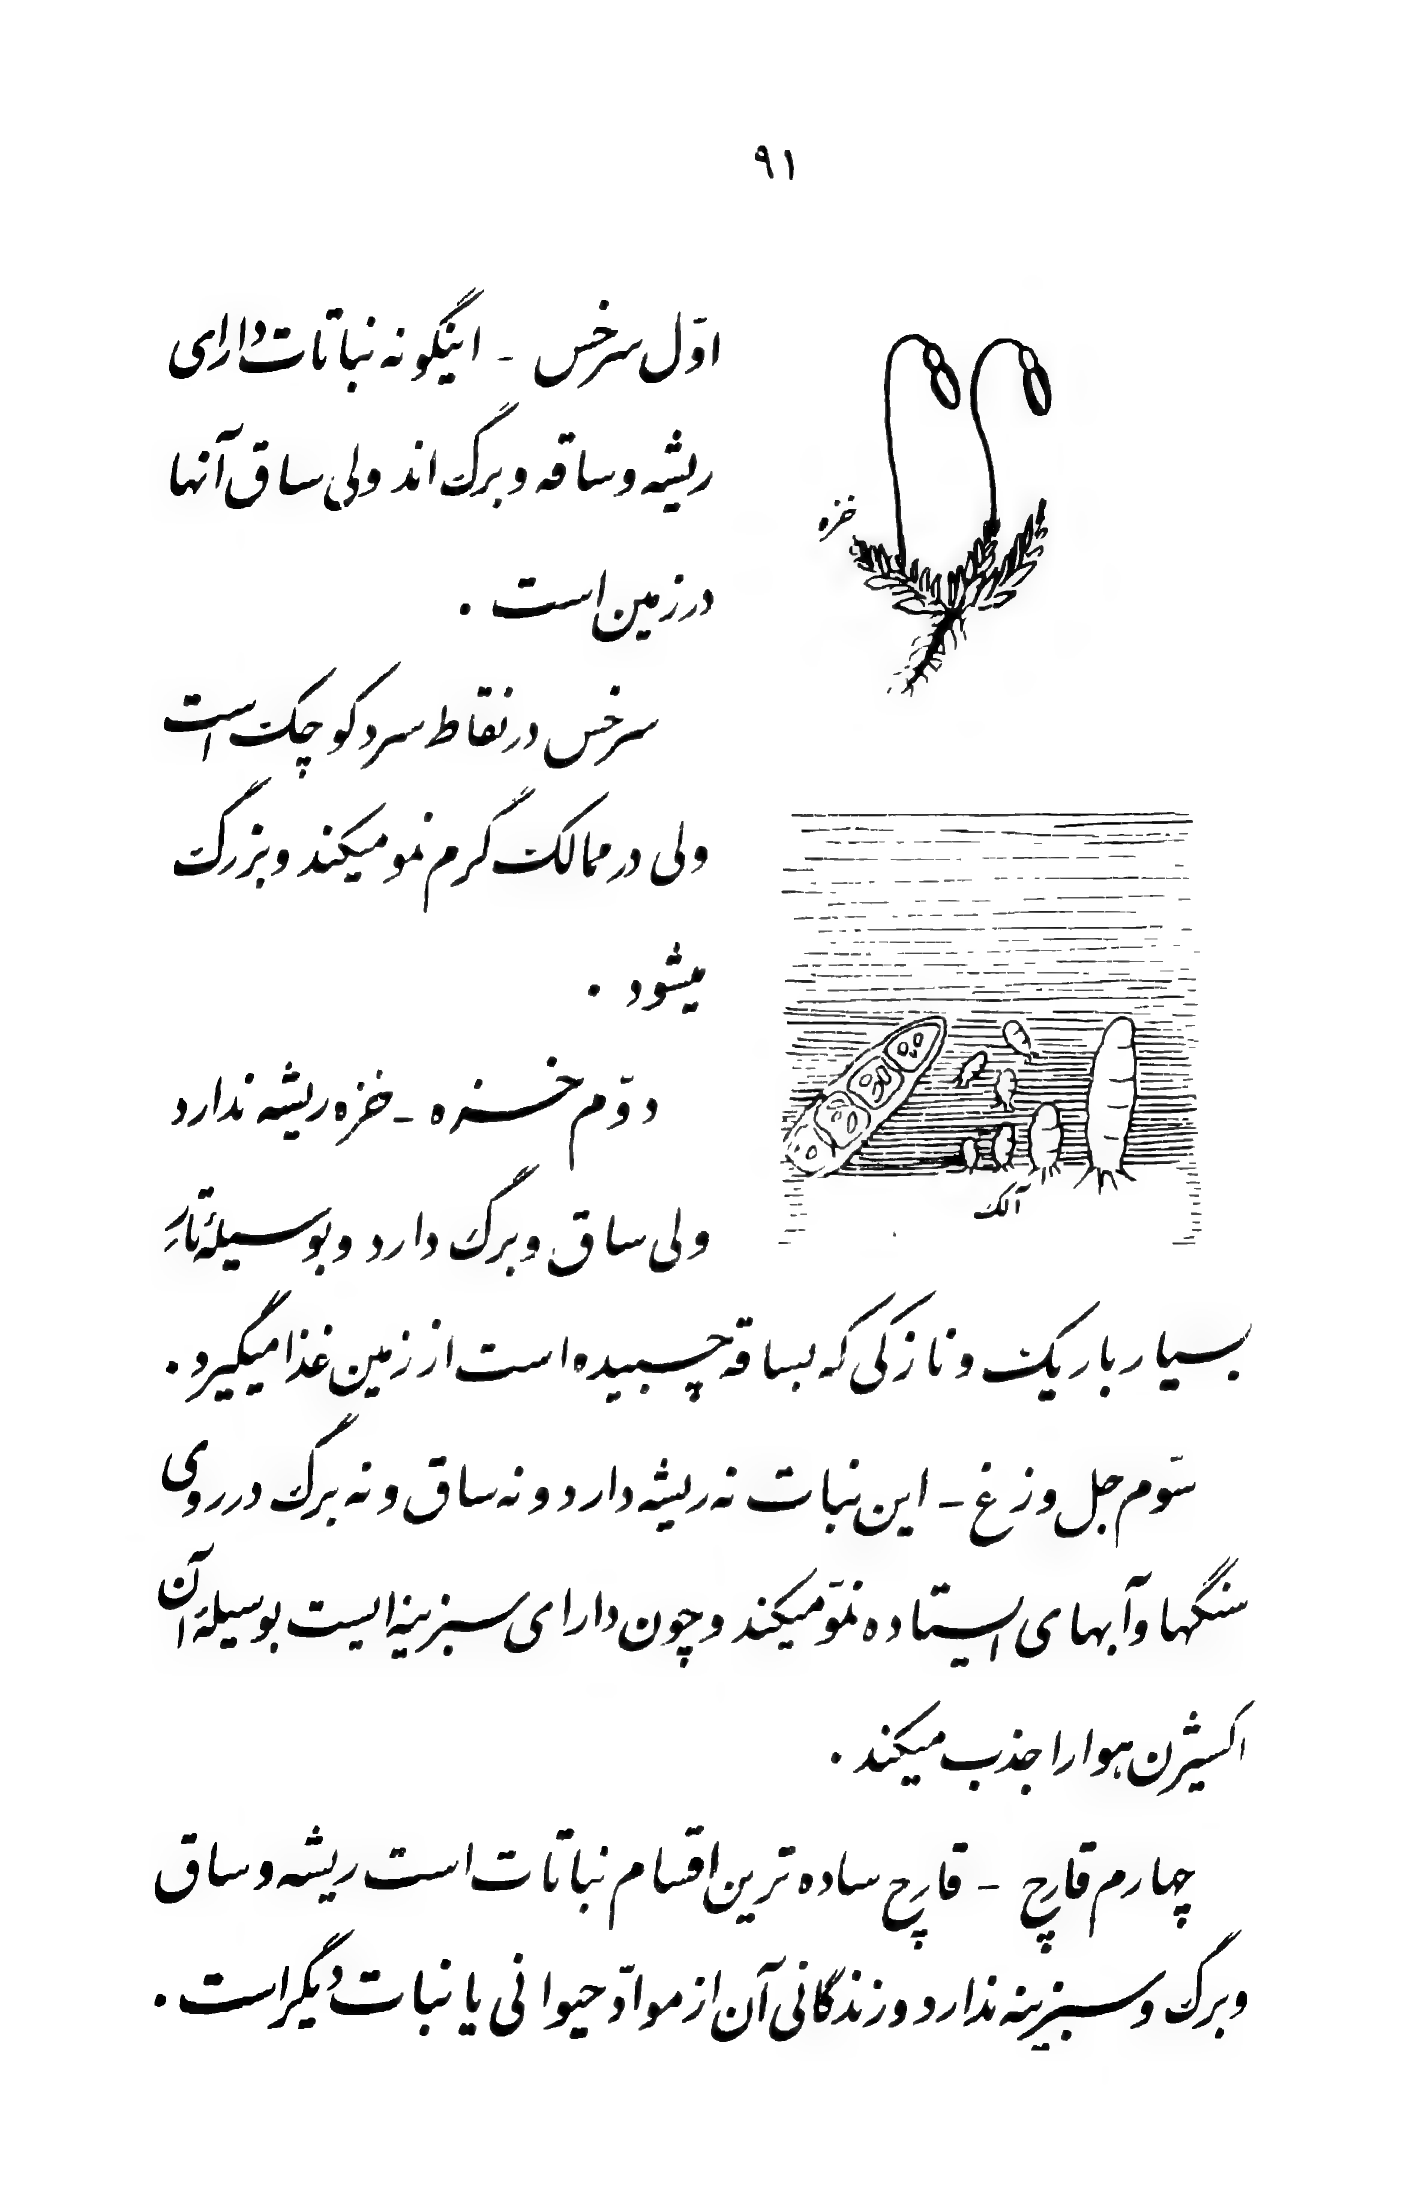 ۹۱
اوّل سرخس - اینگونه نباتات دارای
ریشه و ساقه و برگ اند ولی ساق آنها
در زمین است .
سرخس در نقاط سرد کوچک است
ولی در ممالک گرم نمو میکند و بزرگ
میشود .
دوّم خزه - خزه ریشه ندارد
ولی ساق و برگ دارد و بوسیلهٔ تارِ
خزه
آلک
بسیار باریک و نازکی که بساقه چسبیده است از زمین غذا میگیرد .
سّوم جل وزغ - این نبات نه ریشه دارد و نه ساق و نه برگ در روی
سنگها و آبهای ایستاده نموّ میکند و چون دارای سبزینه ایست بوسیلهٔ آن
اکسیژن هوا را جذب میکند .
چهارم قارچ - قارچ ساده ترین اقسام نباتات است ریشه و ساق
و برگ و سبزینه ندارد و زندگانی آن از موادّ حیوانی یا نبات دیگر است .